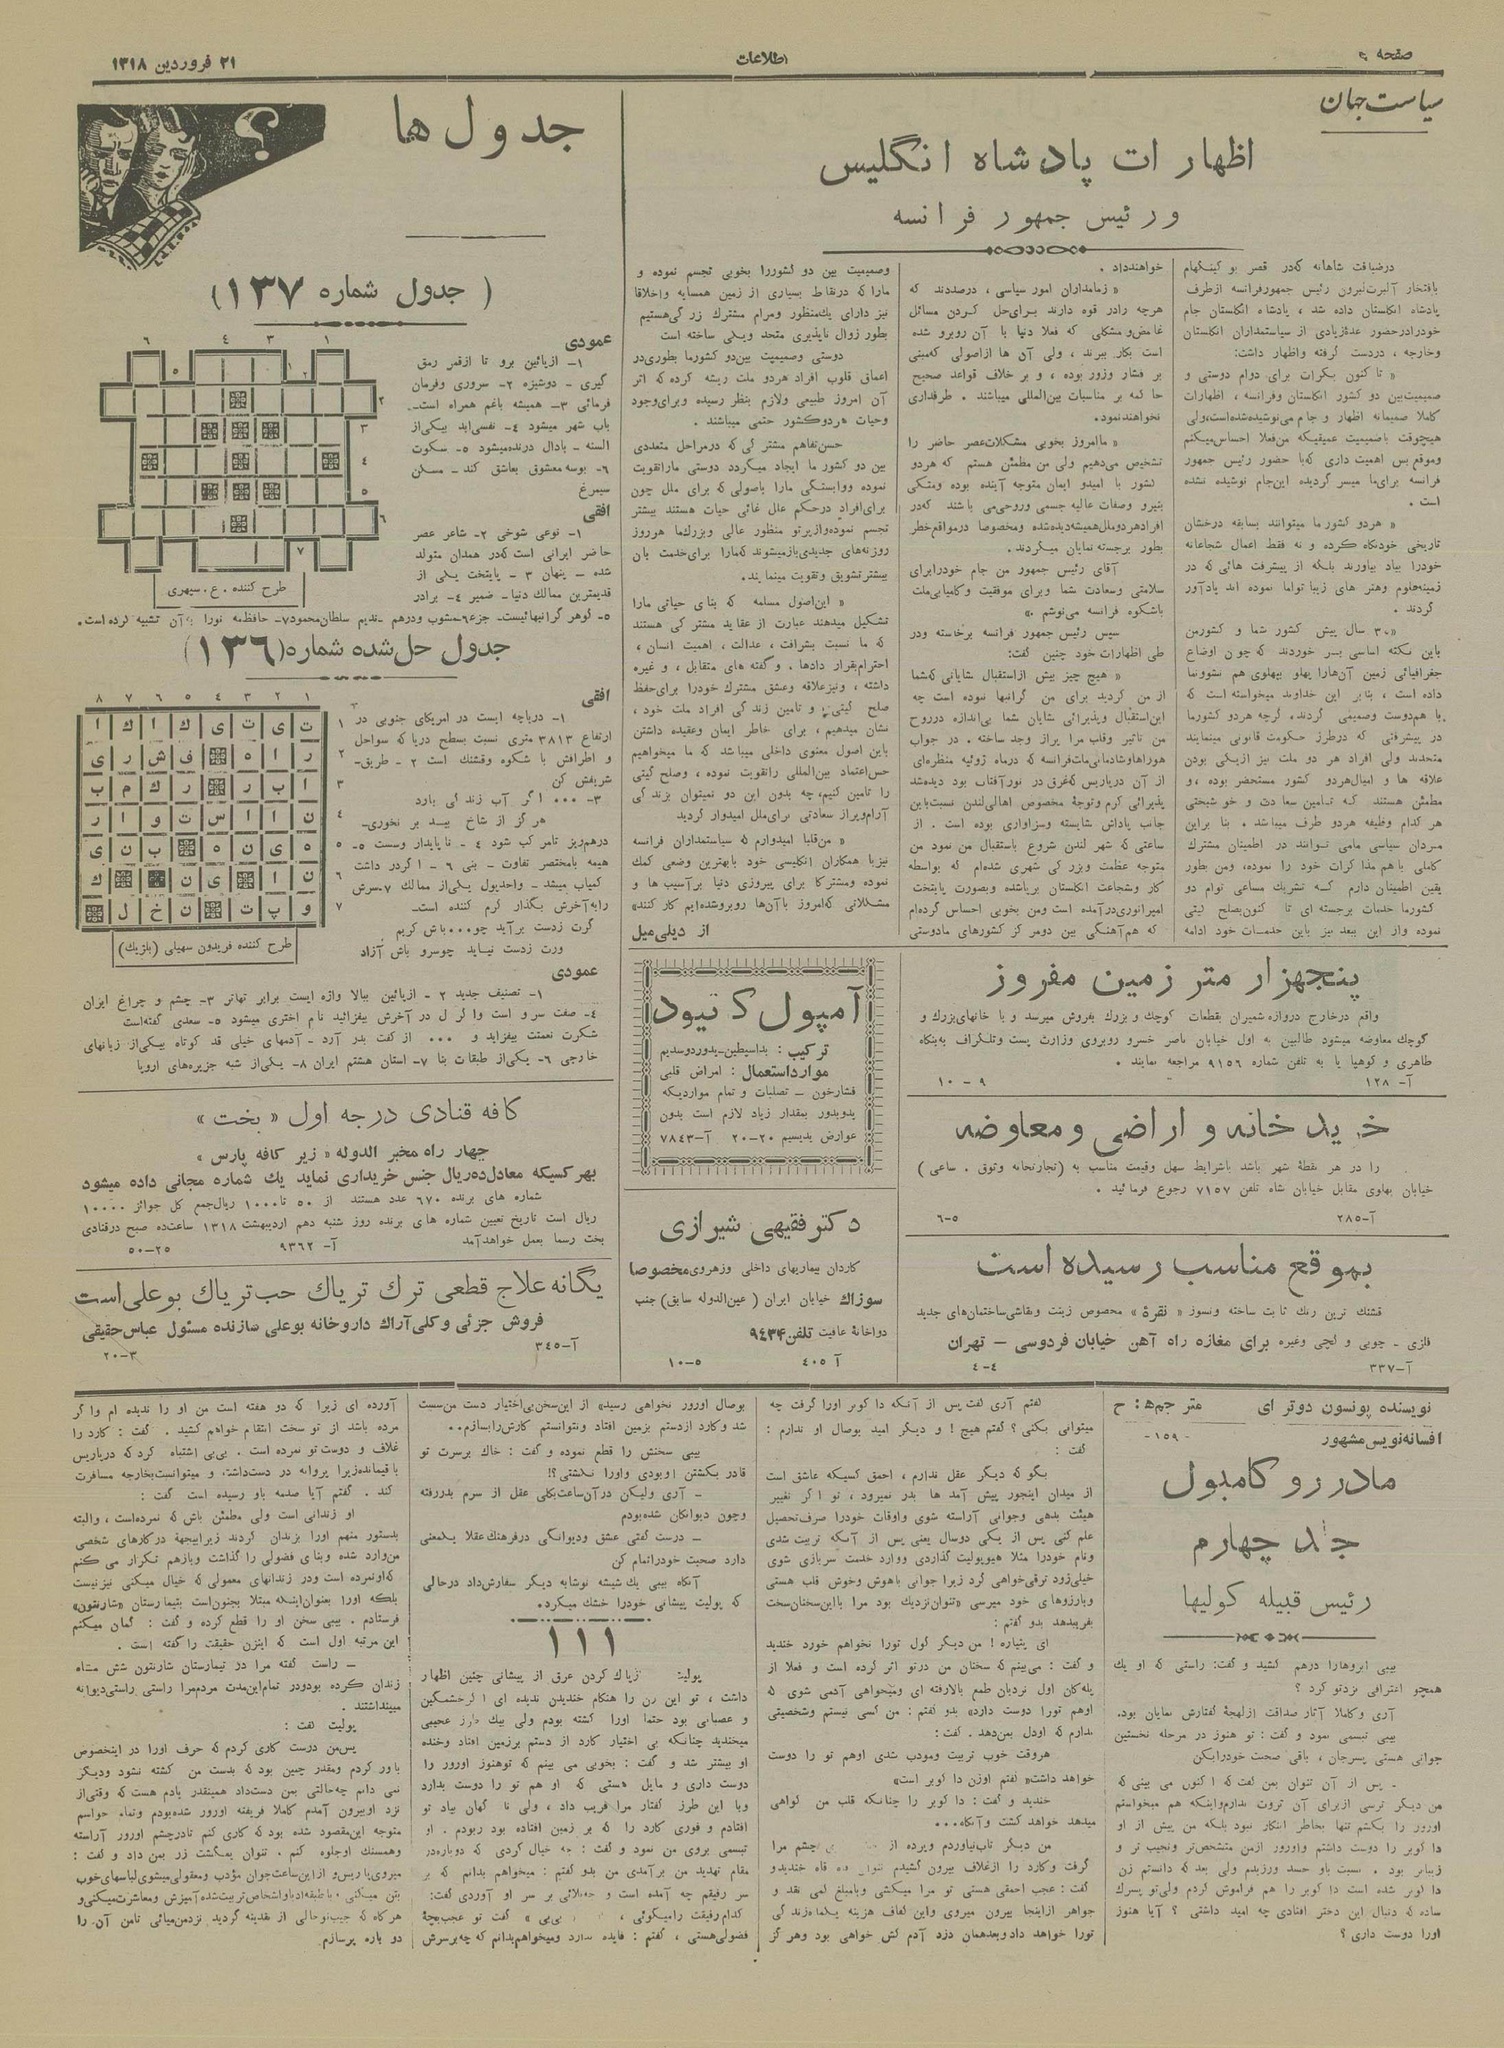 صفحه ۲
اطلاعات
۲۱ فروردین ۱۳۱۸
سیاست جهان
اظهارات پادشاه انگلیس
و رئیس جمهور فرانسه
درضیافت شاهانه که‌در قصر بوکینگهام
بافتخار آلبرت‌لبرون رئیس جمهورفرانسه ازطرف
پادشاه انگلستان داده شد ، پادشاه انگلستان جام
خودرادرحضور عدهٔ‌زیادی از سیاستمداران انگلستان
وخارجه ، دردست گرفته واظهار داشت:
« تا کنون بکرات برای دوام دوستی و
صمیمیت‌بین دو کشور انگلستان وفرانسه ، اظهارات
کاملا صمیمانه اظهار و جام می‌نوشیده‌شده‌است‌،ولی
هیچوقت باصمیمیت عمیقیکه من‌فعلا احساس‌میکنم
وموقع بس اهمیت داری که‌با حضور رئیس جمهور
فرانسه برای‌ما میسر گردیده این‌جام نوشیده نشده
است .
« هردو کشور ما میتوانند بسابقه درخشان
تاریخی خودنگاه کرده و نه فقط اعمال شجاعانه
خودرا بیاد بیاورند بلکه از پیشرفت هائی که در
زمینه‌علوم وهنر های زیبا تواما نموده اند یادآور
گردند .
«۳۰ سال پیش کشور شما و کشورمن
باین نکته اساسی بر خوردند که چون اوضاع
جغرافیائی زمین آن‌هارا پهلو بپهلوی هم نشوونما
داده است ، بنابر این خداوند میخواسته است که
با هم‌دوست وصمیمی گردند. گرچه هردو کشورما
در پیشرفتی که درطرز حکومت قانونی مینمایند
متحدند ولی افراد هر دو ملت نیز ازیکی بودن
علاقه ها و امیال‌هردو کشور مستحضر بوده ، و
مطمئن هستند که تامین سعادت و خوشبختی
هر کدام وظیفه هردو طرف میباشد . بنا براین
مردان سیاسی مامی توانند در اطمینان مشترک
کاملی باهم مذاکرات خود را نموده، ومن بطور
یقین اطمینان دارم که تشریک مساعی توام دو
کشورما خدمات برجسته ای تا کنون‌بصلح گیتی
نموده واز این ببعد نیز باین خدمات خود ادامه
خواهندداد .
« زمامداران امور سیاسی ، درصددند که
هرچه رادر قوه دارند برای‌حل کردن مسائل
غامض‌ومشکلی که فعلا دنیا با آن روبرو شده
است بکار ببرند ، ولی آن ها ازاصولی که‌مبنی
بر فشار وزور بوده ، و بر خلاف قواعد صحیح
حاکمه بر مناسبات بین‌المللی میباشند . طرفداری
نخواهندنمود.
« ماامروز بخوبی مشکلات‌عصر حاضر را
تشخیص می‌دهیم ولی من مطمئن هستم که هردو
کشور با امیدو ایمان متوجه آینده بوده ومتکی
بنیرو وصفات عالیه جسمی وروحی‌می باشند که‌در
افرادهردوملل‌همیشه‌دیده‌شده ومخصوصا درمواقع‌خطر
بطور برجسته نمایان میگردند.
آقای رئیس جمهور من جام خودرابرای
سلامتی وسعادت شما وبرای موفقیت وکامیابی‌ملت
باشکوه فرانسه می‌نوشم .»
سپس رئیس جمهور فرانسه برخاسته ودر
طی اظهارات خود چنین گفت:
« هیچ چیز بیش ازاستقبال شایانی که‌شما
از من کردید برای من گرانبها نبوده است چه
این‌استقبال وپذیرائی شایان شما بی‌اندازه درروح
من تاثیر وقلب مرا پراز وجد ساخته . در جواب
هوراهاوشادمانی‌ملت‌فرانسه که درماه ژوئیه منظره‌ای
از آن درپاریس که‌غرق در نورآفتاب بود دیده‌شد
پذیرائی گرم وتوجهٔ مخصوص اهالی‌لندن نسبت‌باین
جانب پاداش شایسته وسزاواری بوده است . از
ساعتی که شهر لندن شروع باستقبال من نمود من
متوجه عظمت وبزرگی شهری شده‌ام که بواسطه
کار وشجاعت انگلستان برپاشده وبصورت پایتخت
امپراتوری‌درآمده است ومن بخوبی احساس کرده‌ام
که هم‌آهنگی بین دومرکز کشورهای مادوستی
وصمیمیت بین دو کشوررا بخوبی تجسم نموده و
مارا که درنقاط بسیاری از زمین همسایه واخلاقا
نیز دارای یک‌منظور ومرام مشترک زرگی‌هستیم
بطور زوال ناپذیری متحد ویکی ساخته است
دوستی وصمیمیت بین‌دو کشورما بطوری‌در
اعماق قلوب افراد هردو ملت ریشه کرده که اثر
آن امروز طبیعی ولازم بنظر رسیده وبرای‌وجود
وحیات هردوکشور حتمی میباشند .
حسن‌تفاهم مشترکی که درمراحل متعددی
بین دو کشور ما ایجاد میگردد دوستی ماراتقویت
نموده ووابستگی مارا باصولی که برای ملل چون
برای‌افراد درحکم علل غائی حیات هستند بیشتر
تجسم نموده‌وازپرتو منظور عالی وبزرک‌ما هرروز
روزنه‌های جدیدی‌بازمیشوندکه‌مارا برای‌خدمت بان
بیشترتشویق وتقویت مینمایند.
« این‌اصول مسلمه که بنای حیاتی مارا
تشکیل میدهند عبارت از عقاید مشترکی هستند
که ما نسبت بشرافت ، عدالت ، اهمیت انسان ،
احترام‌بقرار دادها ، وگفته های متقابل ، و غیره
داشته ، ونیزعلاقه وعشق مشترک خودرا برای‌حفظ
صلح گیتی؛ و تامین زندگی افراد ملت خود ،
نشان میدهیم ، برای خاطر ایمان وعقیده داشتن
باین اصول معنوی داخلی میباشد که ما میخواهیم
حس‌اعتماد بین‌المللی راتقویت نموده ، وصلح گیتی
را تامین کنیم، چه بدون این دو نمیتوان بزندگی
آرام‌وپراز سعادتی برای‌ملل امیدوار گردید
« من‌قلبا امیدوارم که سیاستمداران فرانسه
نیزبا همکاران انگلیسی خود بابهترین وضعی کمک
نموده ومشترکا برای پیروزی دنیا برآسیب ها و
مشکلاتی که‌امروز باآن‌ها روبروشده‌ایم کار کنند»
از دیلی میل
جدول ها
( جدول شماره ۱۳۷)
عمودی
۱- ازپائین برو تا ازقمر رمق
گیری - دوشیزه ۲- سروری وفرمان
فرمائی ۳- همیشه باغم همراه است-
باب شهر میشود ۴- نفسی‌ابد بیکی‌از
السنه - بادال درنده‌میشود ۵- سکوت
۶- بوسه معشوق بعاشق کند - مسکن
سیمرغ
افقی
۱- نوعی شوخی ۲- شاعر عصر
حاضر ایرانی است که‌در همدان متولد
شده - پنهان ۳ - پایتخت یکی از
قدیمترین ممالک دنیا- ضمیر ۴- برادر
۵- گوهر گرانبهائیست- جزء۶-منسوب ودرهم -ندیم سلطان‌محمود۷- حافظ‌مه نورا بآن تشبیه کرده است.
طرح کننده . ع . سپهری
جدول حل‌شده شماره(۱۳۶)
۱ ۲ ۳ ۴ ۵ ۶ ۷ ۸
ت ی ت ی ک ا ک ا
ر ا ه ف ش ر ی
ا ب ر ر ک م ب
ن ا ا س ت و ا ر
ه ی ن ه ب ن ی
ن ا ی ن ک
و پ ت ن خ ل
طرح کننده فریدون سهیلی (بلژیک)
افقی
۱- دریاچه ایست در امریکای جنوبی در
ارتفاع ۳۸۱۳ متری نسبت بسطح دریا که سواحل
و اطرافش با شکوه وقشنک است ۲ - طریق-
شریفش کن
۳- ۰۰۰ اگر آب زندگی بارد
هرگز از شاخ بید بر نخوری-
درهم‌ریز تامرکب شود ۴ - ناپایدار وسست ۵-
هیمه بامختصر تفاوت - بنی ۶ - اگردر داشت
کمیاب میشد - واحدپول یکی‌از ممالک ۷-سرش
رابه‌آخرش بگذار گرم کننده است-
گرت زدست برآید چو...باش کریم
ورت زدست نیاید چوسرو باش آزاد
عمودی
۱- تصنیف جدید ۲ - ازپائین ببالا واژه ایست برابر تهاتر ۳- چشم و چراغ ایران
۴- صفت سرو است واگر ل در آخرش بیفزائید نام اختری میشود ۵- سعدی گفته‌است
شکرت نعمتت بیفزاید و ۰۰۰ از کفت بدر آرد - آدمهای خیلی قد کوتاه بیکی‌از زبانهای
خارجی ۶- یکی‌از طبقات بنا ۷- استان هشتم ایران ۸- یکی‌از شبه جزیره‌های اروپا
پنجهزار متر زمین مفروز
واقع درخارج دروازه شمیران بقطعات کوچک و بزرک بفروش میرسد و با خانهای‌بزرک و
کوچک معاوضه میشود طالبین به اول خیابان ناصر خسرو روبروی وزارت پست وتلگراف به‌بنگاه
طاهری و کوهپا یا به تلفن شماره ۹۱۵۶ مراجعه نمایند .
آ- ۱۲۸
۹ - ۱۰
خرید خانه و اراضی ومعاوضه
را در هر نقطهٔ شهر باشد باشرایط سهل وقیمت مناسب به (تجارتخانه وثوق . ساعی )
خیابان پهلوی مقابل خیابان شاه تلفن ۷۱۵۷ رجوع فرمائید .
آ-۲۸۵
۵-۶
بموقع مناسب رسیده است
قشنک ترین رنک ثابت ساخته ونسوز « نقرهٔ » مخصوص زینت ونقاشی‌ساختمان‌های جدید
فلزی - چوبی و گچی وغیره برای مغازه راه آهن خیابان فردوسی - تهران
آ-۳۳۷
۴-۴
آمپول کتیود
ترکیب : بداسیطین-یدوردوسدیم
موارداستعمال : امراض قلبی
فشارخون - تصلبات و تمام مواردیکه
یدویدور بمقدار زیاد لازم است بدون
عوارض یدیسم ۲۰-۲۰ آ-۷۸۴۳
دکترفقیهی شیرازی
کاردان بیماریهای داخلی وزهروی‌مخصوصا
سوزاک خیابان ایران ( عین‌الدوله سابق) جنب
دواخانهٔ عافیت تلفن۹۴۳۴
آ ۴۰۵
۵-۱۰
کافه قنادی درجه اول « بخت »
چهار راه مخبر الدوله « زیر کافه پارس »
بهر کسیکه معادل‌ده‌ریال جنس خریداری نماید یک شماره مجانی داده میشود
شماره های برنده ۶۷۰ عدد هستند از ۵۰ تا ۱۰۰۰ ریال‌جمع کل جوائز ۱۰۰۰۰
ریال است تاریخ تعیین شماره های برنده روز شنبه دهم اردیبهشت ۱۳۱۸ ساعت‌ده صبح درقنادی
بخت رسما بعمل خواهدآمد
آ- ۹۳۶۲
۲۵-۵۰
یگانه علاج قطعی ترک تریاک حب‌تریاک بوعلی‌است
فروش جزئی وکلی‌آراک داروخانه بوعلی سازنده مسئول عباس‌حقیقی
آ-۳۴۵
۳-۲۰
نویسنده پونسون دوترای
مترجم: ح
افسانه‌نویس‌مشهور
-۱۵۹-
مادر رو کامبول
جلد چهارم
رئیس قبیله کولیها
بیبی ابروهارا درهم کشید و گفت: راستی که او یک
همچو اعترافی نزدتو کرد ؟
آری وکاملا آثار صداقت ازلهجهٔ گفتارش نمایان بود.
بیبی تبسمی نمود و گفت : تو هنوز در مرحله نخستین
جوانی هستی پسرجان ، باقی صحبت خودرابکن
- پس از آن تنوان بمن گفت که اکنون می بینی که
من دیگر ترسی ازبرای آن ثروت ندارم‌واینکه هم میخواستم
اورور را بکشم تنها بخاطر ابتکار نبود بلکه من پیش از او
داکوبر را دوست داشتم واورور ازمن متشخص‌تر ونجیب تر و
زیباتر بود . نسبت باو حسد ورزیدم ولی بعد که دانستم زن
داکوبر شده است داکوبر را هم فراموش کردم ولی‌تو پسرک
ساده که دنبال این دختر افتادی چه امید داشتی ؟ آیا هنوز
اورا دوست داری ؟
گفتم آری گفت پس از آنکه داکوبر اورا گرفت چه
میتوانی بکنی؟ گفتم هیچ ! و دیگر امید بوصال او ندارم :
گفت :
بگو که دیگر عقل ندارم ، احمق کسیکه عاشق است
از میدان اینجور پیش آمد ها بدر نمیرود ، تو اگر تغییر
هیئت بدهی وجوانی آراسته شوی واوقات خودرا صرف‌تحصیل
علم کنی پس از یکی دوسال یعنی پس از آنکه تربیت شدی
ونام خودرا مثلا هیوپولیت گذاردی ووارد خدمت سربازی شوی
خیلی‌زود ترقی‌خواهی کرد زیرا جوانی باهوش وخوش قلب هستی
وبارزوهای خود میرسی «تنوان‌نزدیک بود مرا بااین‌سخنان‌سخت
بفریبدهد بدو گفتم :
ای پتیاره ! من دیگر گول تورا نخواهم خورد خندید
و گفت : می‌بینم که سخنان من درتو اثر کرده است و فعلا از
پله‌کان اول نردبان طمع بالارفته ای ومیخواهی آدمی شوی که
اوهم تورا دوست دارد» بدو گفتم : من کسی نیستم وشخصیتی
ندارم که اودل بمن‌دهد . گفت :
هروقت خوب تربیت ومودب شدی اوهم تو را دوست
خواهد داشت« گفتم اوزن داکوبر است»
خندید و گفت : داکوبر را چنانکه قلب من گواهی
میدهد خواهد کشت و آنگاه...
من دیگر تاب‌نیاوردم وپرده از چشم مرا
گرفت وکارد را ازغلاف بیرون کشیدم تنوان قاه خندیدو
گفت : عجب احمقی هستی تو مرا میکشی وبامبلغ کمی نقد و
جواهر ازاینجا بیرون میروی واین کفاف هزینه یکماه‌زندگی
تورا خواهد دادوبعدهمان دزد آدم کش خواهی بود وهرگز
بوصال اورور نخواهی رسید» از این‌سخن‌بی‌اختیار دست من‌سست
شد وکارد ازدستم بزمین افتاد ونتوانستم کارش‌رابسازم..
بیبی سخنش را قطع نموده و گفت : خاک برسرت تو
قادر بکشتن اوبودی واورا نکشتی؟!
- آری ولیکن درآن‌ساعت‌بکلی عقل از سرم بدررفته
وچون دیوانکان شده‌بودم
- درست گفتی عشق ودیوانگی درفرهنک‌عقلا یک‌معنی
دارد صحبت خودرااتمام کن
آنگاه بیبی یک شیشه نوشابه دیگر سفارش‌داد درحالی
که پولیت پیشانی خودرا خشک میکرد.
پولیت زپاک کردن عرق از پیشانی چنین اظهار
داشت ، تو این زن را هنگام خندیدن ندیده ای اگرخشمگین
و عصبانی بود حتما اورا کشته بودم ولی بیک طرز عجیبی
میخندید چنانکه بی اختیار کارد از دستم برزمین افتاد وخنده
او بیشتر شد و گفت : بخوبی می بینم که توهنوز اورور را
دوست داری و مایل هستی که او هم تو را دوست بدارد
وبا این طرز گفتار مرا فریب داد ، ولی ناگهان بیاد تو
افتادم و فوری کارد را که بر زمین افتاده بود ربودم . او
تبسمی بروی من نمود و گفت : چه خیال کردی که دوباره‌در
مقام تهدید من برآمدی من بدو گفتم : میخواهم بدانم که بر
سر رفیقم چه آمده است و چه‌بلائی بر سر او آوردی گفت:
کدام رفیقت رامیگوئی ، بی‌بی » گفت تو عجب‌بچهٔ
فضولی‌هستی ، گفتم : فایده ندارد ومیخواهم‌بدانم که چه‌برسرش
آورده ای زیرا که دو هفته است من او را ندیده ام واگر
مرده باشد از تو سخت انتقام خواهم کشید . گفت : کارد را
غلاف و دوست تو نمرده است . بی‌بی اشتباه کرد که درپاریس
باقیمانده‌زیرا پروانه در دست‌داشت، و میتوانست‌بخارجه مسافرت
کند . گفتم آیا صدمه باو رسیده است گفت :
او زندانی است ولی مطمئن باش که نمرده‌است ، والبته
بدستور منهم اورا بزندان کردند زیرابیجهة درکارهای شخصی
من‌وارد شده وبنای فضولی را گذاشت وبازهم تکرار می کنم
که‌اونمرده است ودر زندانهای معمولی که خیال میکنی نیزنیست
بلکه اورا بعنوان‌اینکه مبتلا بجنون‌است بتیمارستان «شارنتون»
فرستادم . بیبی سخن او را قطع کرده و گفت : گمان میکنم
این مرتبه اول است که اینزن حقیقت را گفته است .
- راست گفته مرا در تیمارستان شارنتون شش ماه
زندان کرده بودودر تمام‌این‌مدت مردم‌مرا راستی راستی‌دیوانه
میپنداشتند .
پولیت گفت :
پس‌من درست کاری کردم که حرف اورا در اینخصوص
باور کردم ومقدر چنین بود که بدست من کشته نشود ودیگر
نمی دانم چه‌حالتی بمن دست‌داد همینقدر یادم هست که وقتی‌از
نزد اوبیرون آمدم کاملا فریفته اورور شده‌بودم وتمام حواسم
متوجه این‌مقصود شده بود که کاری کنم تادرچشم اورور آراسته
وهمسنک اوجلوه کنم . تنوان یکمشت زر بمن داد و گفت :
میروی‌با‌ریس و ازاین‌ساعت‌جوان مؤدب ومعقولی‌میشوی‌لباسهای‌خوب
بتن میکنی ، باطبقه‌ادباواشخاص‌تربیت‌شده‌آمیزش ومعاشرت‌میکنی‌و
هرگاه که جیب‌توخالی از نقدینه گردید نزدمن‌میائی تامن آن را
دو باره پرسازم.